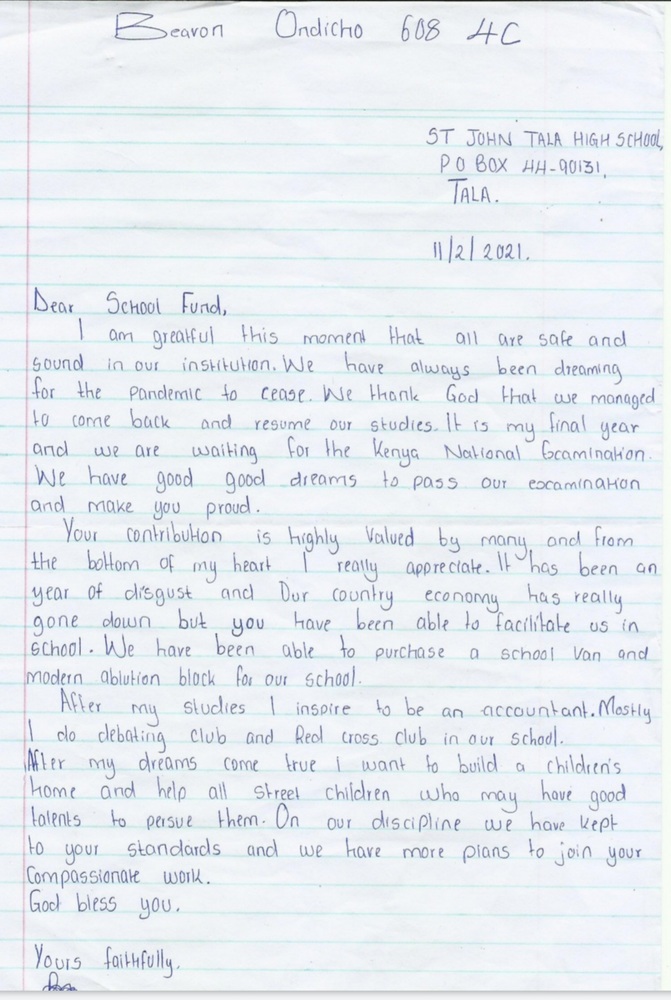 Bearon Ondicho 608 4C
ST JOHN TALA HIGH SCHOOL,
P O BOX 44-90131,
TALA.
11/2/2021.
Dear School Fund,
I am greatful this moment that all are safe and
sound in our institution. We have always been dreaming
for the pandemic to cease. We thank God that we managed
to come back and resume our studies. It is my final year
and we are waiting for the Kenya National Examination.
We have good good dreams to pass our examination
and make you proud.
Your contribution is highly Valued by many and from
the bottom of my heart I really appreciate. It has been an
year of disgust and Our country economy has really
gone down but you have been able to facilitate us in
school. We have been able to purchase a school Van and
modern ablution block for our school.
After my studies I inspire to be an accountant. Mostly
I do debating Club and Red cross club in our school.
After my dreams come true I want to build a children's
home and help all street children who may have good
talents to persue them. On our discipline we have kept
to your standards and we have more plans to join your
Compassionate work.
God bless you.
Yours faithfully.